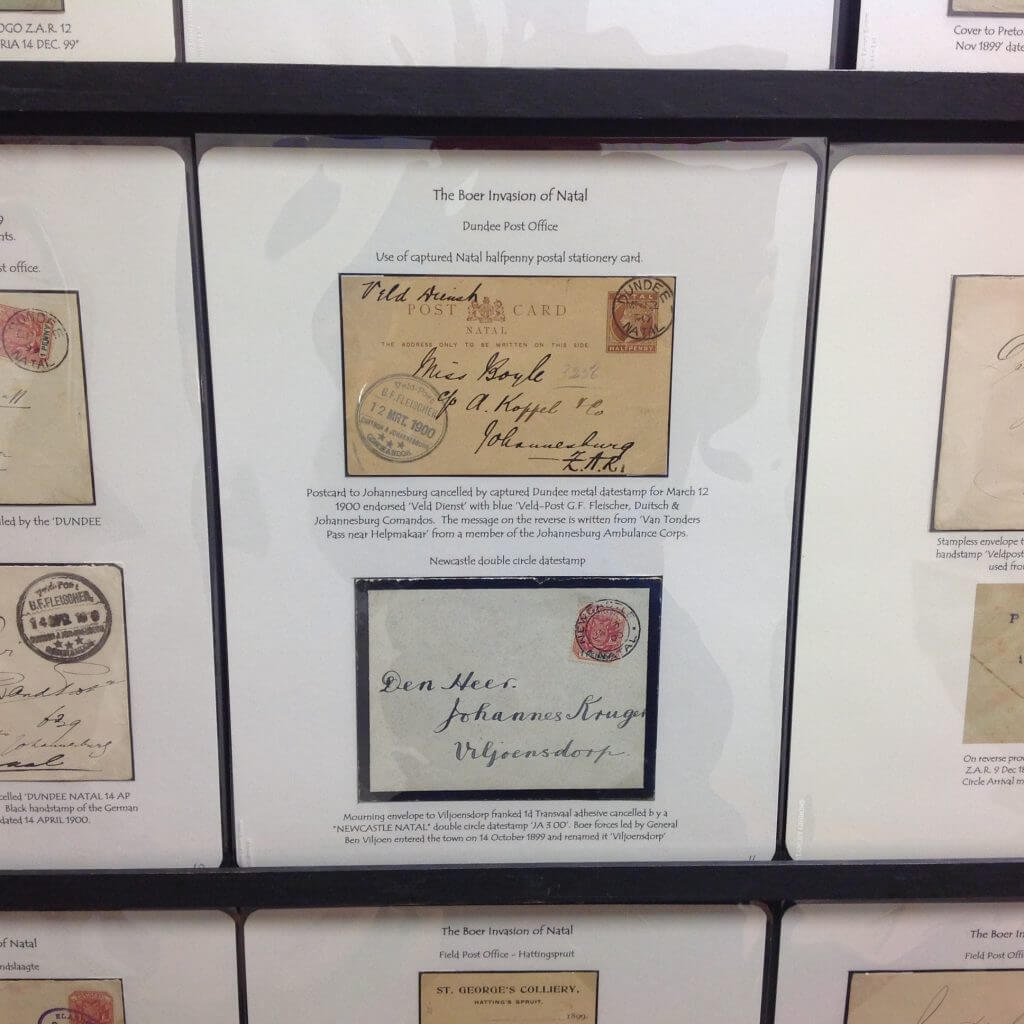 OGO Z.A.R. 12
RIA 14 DEC. 99"
Cover to
Nov 1899' date
nts.
st office.
DUNDEE
NATAL
led by the 'DUNDEE
Veld-Post
G.F. FLEISCHER.
14 APR.
Johannesburg
celled 'DUNDEE NATAL 14 AP
Black handstamp of the German
dated 14 APRIL 1900.
The Boer Invasion of Natal
Dundee Post Office
Use of captured Natal halfpenny postal stationery card.
Veld Dienst
POST CARD
NATAL
THE ADDRESS ONLY TO BE WRITTEN ON THIS SIDE.
HALFPENNY
DUNDEE
NATAL
Miss Boyle
c/o A. Koppel & Co
Johannesburg
Z.A.R.
Veld-Post
G.F. FLEISCHER
12 MRT. 1900
DUITSCH & JOHANNESBURG
COMMANDOS
Postcard to Johannesburg cancelled by captured Dundee metal datestamp for March 12
1900 endorsed 'Veld Dienst' with blue 'Veld-Post G.F. Fleischer, Duitsch &
Johannesburg Comandos. The message on the reverse is written from 'Van Tonders
Pass near Helpmakaar' from a member of the Johannesburg Ambulance Corps.
Newcastle double circle datestamp
NEWCASTLE
NATAL
Den Heer.
Johannes Kruger
Viljoensdorp.
Mourning envelope to Viljoensdorp franked 1d Transvaal adhesive cancelled b y a
"NEWCASTLE NATAL" double circle datestamp 'JA 3 00'. Boer forces led by General
Ben Viljoen entered the town on 14 October 1899 and renamed it 'Viljoensdorp'
11
Stampless envelope t
handstamp 'Veldpost
used fro
On reverse prov
Z.A.R. 9 Dec 18
Circle Arrival m
of Natal
ndslaagte
The Boer Invasion of Natal
Field Post Office - Hattingspruit
ST. GEORGE'S COLLIERY,
HATTING'S SPRUIT.
1899.
The Boer In
Field Post Offi